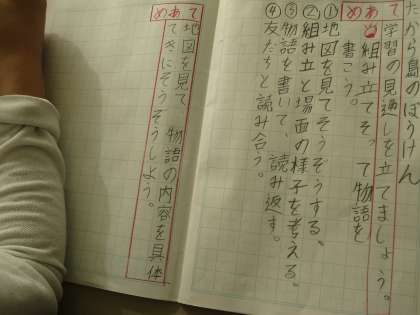 たから島のぼうけん
めあて
学習の見通しを立てましょう。
組み立てそって物語を
書こう。
①地図を見てそうぞうする。
②組み立と場面の様子を考える。
③物語を書いて、読み返す。
④友だちと読み合う。
めあて
地図を見て物語の内容を具体
てきにそうぞうしよう。